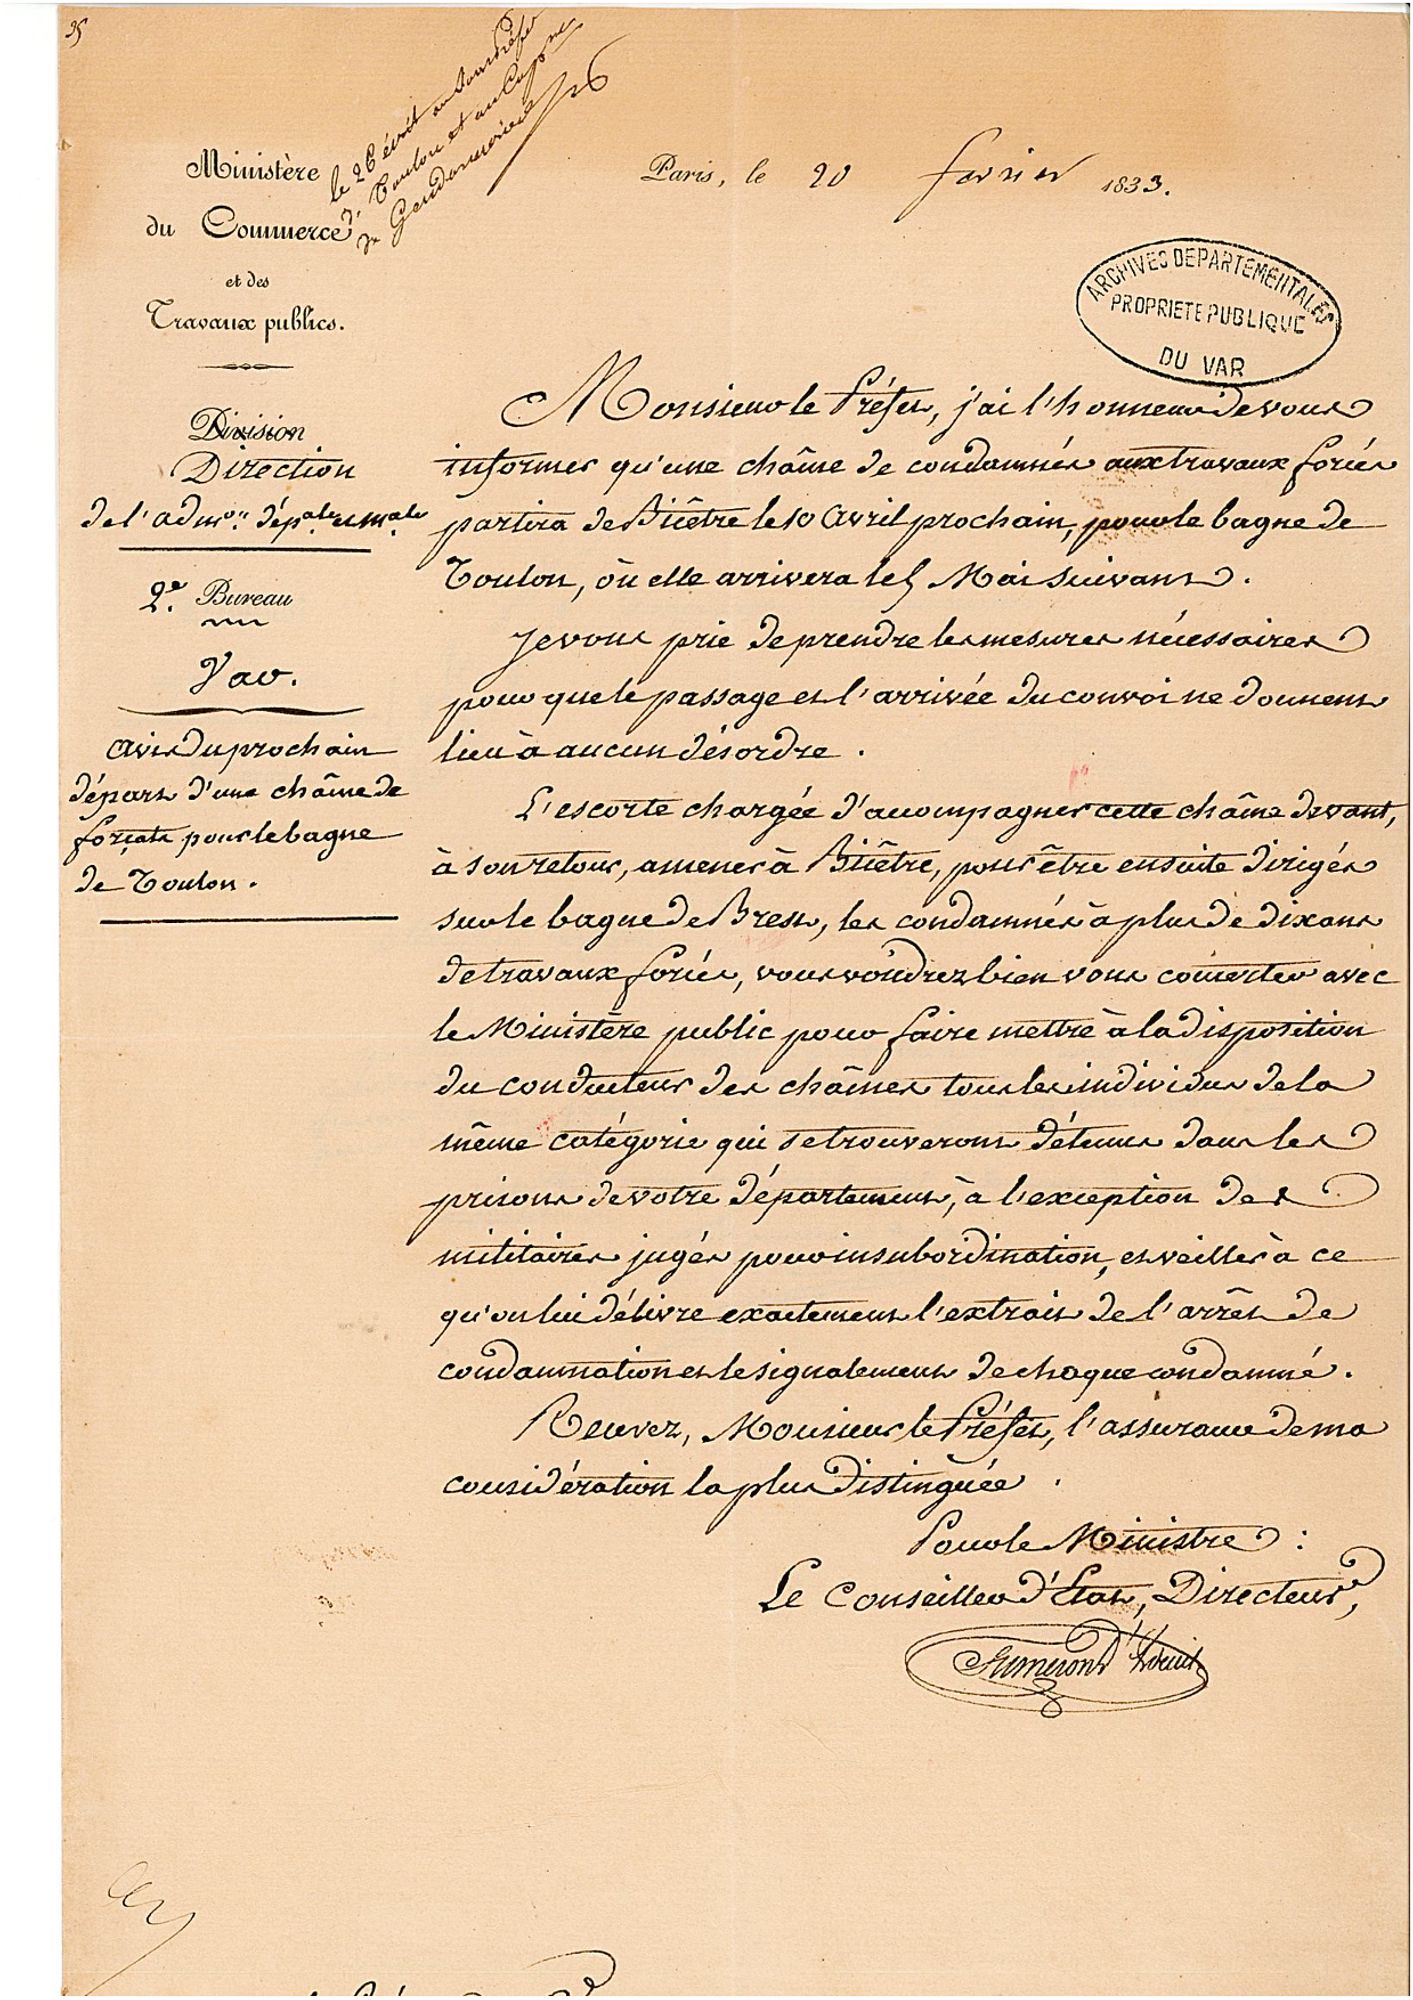 35
le 26 écrit au Sous Préfet
de Toulon et au Capne
de Gendarmerie
Ministère
du Commerce
et des
Travaux publics.
Paris, le 20 février 1833.
ARCHIVES DEPARTEMENTALES
PROPRIETE PUBLIQUE
DU VAR
Division
Direction
de l'admon. dépale et male.
2e. Bureau
Var.
Avis du prochain
départ d'une chaîne de
forçats pour le bagne
de Toulon.
Monsieur le Préfet, j'ai l'honneur de vous
informer qu'une chaîne de condamnés aux travaux forcés
partira de Bicêtre le 10 Avril prochain, pour le bagne de
Toulon, où elle arrivera le 5 Mai suivant.
Je vous prie de prendre les mesures nécessaires
pour que le passage et l'arrivée du convoi ne donnent
lieu à aucun désordre.
L'escorte chargée d'accompagner cette chaîne devant,
à son retour, amener à Bicêtre, pour être ensuite dirigés
sur le bagne de Brest, les condamnés à plus de dix ans
de travaux forcés, vous voudrez bien vous concerter avec
le Ministère public pour faire mettre à la disposition
du conducteur des chaînes tous les individus de la
même catégorie qui se trouveront détenus dans les
prisons de votre département, à l'exception des
militaires jugés pour insubordination, et veiller à ce
qu'on lui délivre exactement l'extrait de l'arrêt de
condamnation et le signalement de chaque condamné.
Recevez, Monsieur le Préfet, l'assurance de ma
considération la plus distinguée.
Pour le Ministre :
Le Conseiller d'Etat, Directeur,